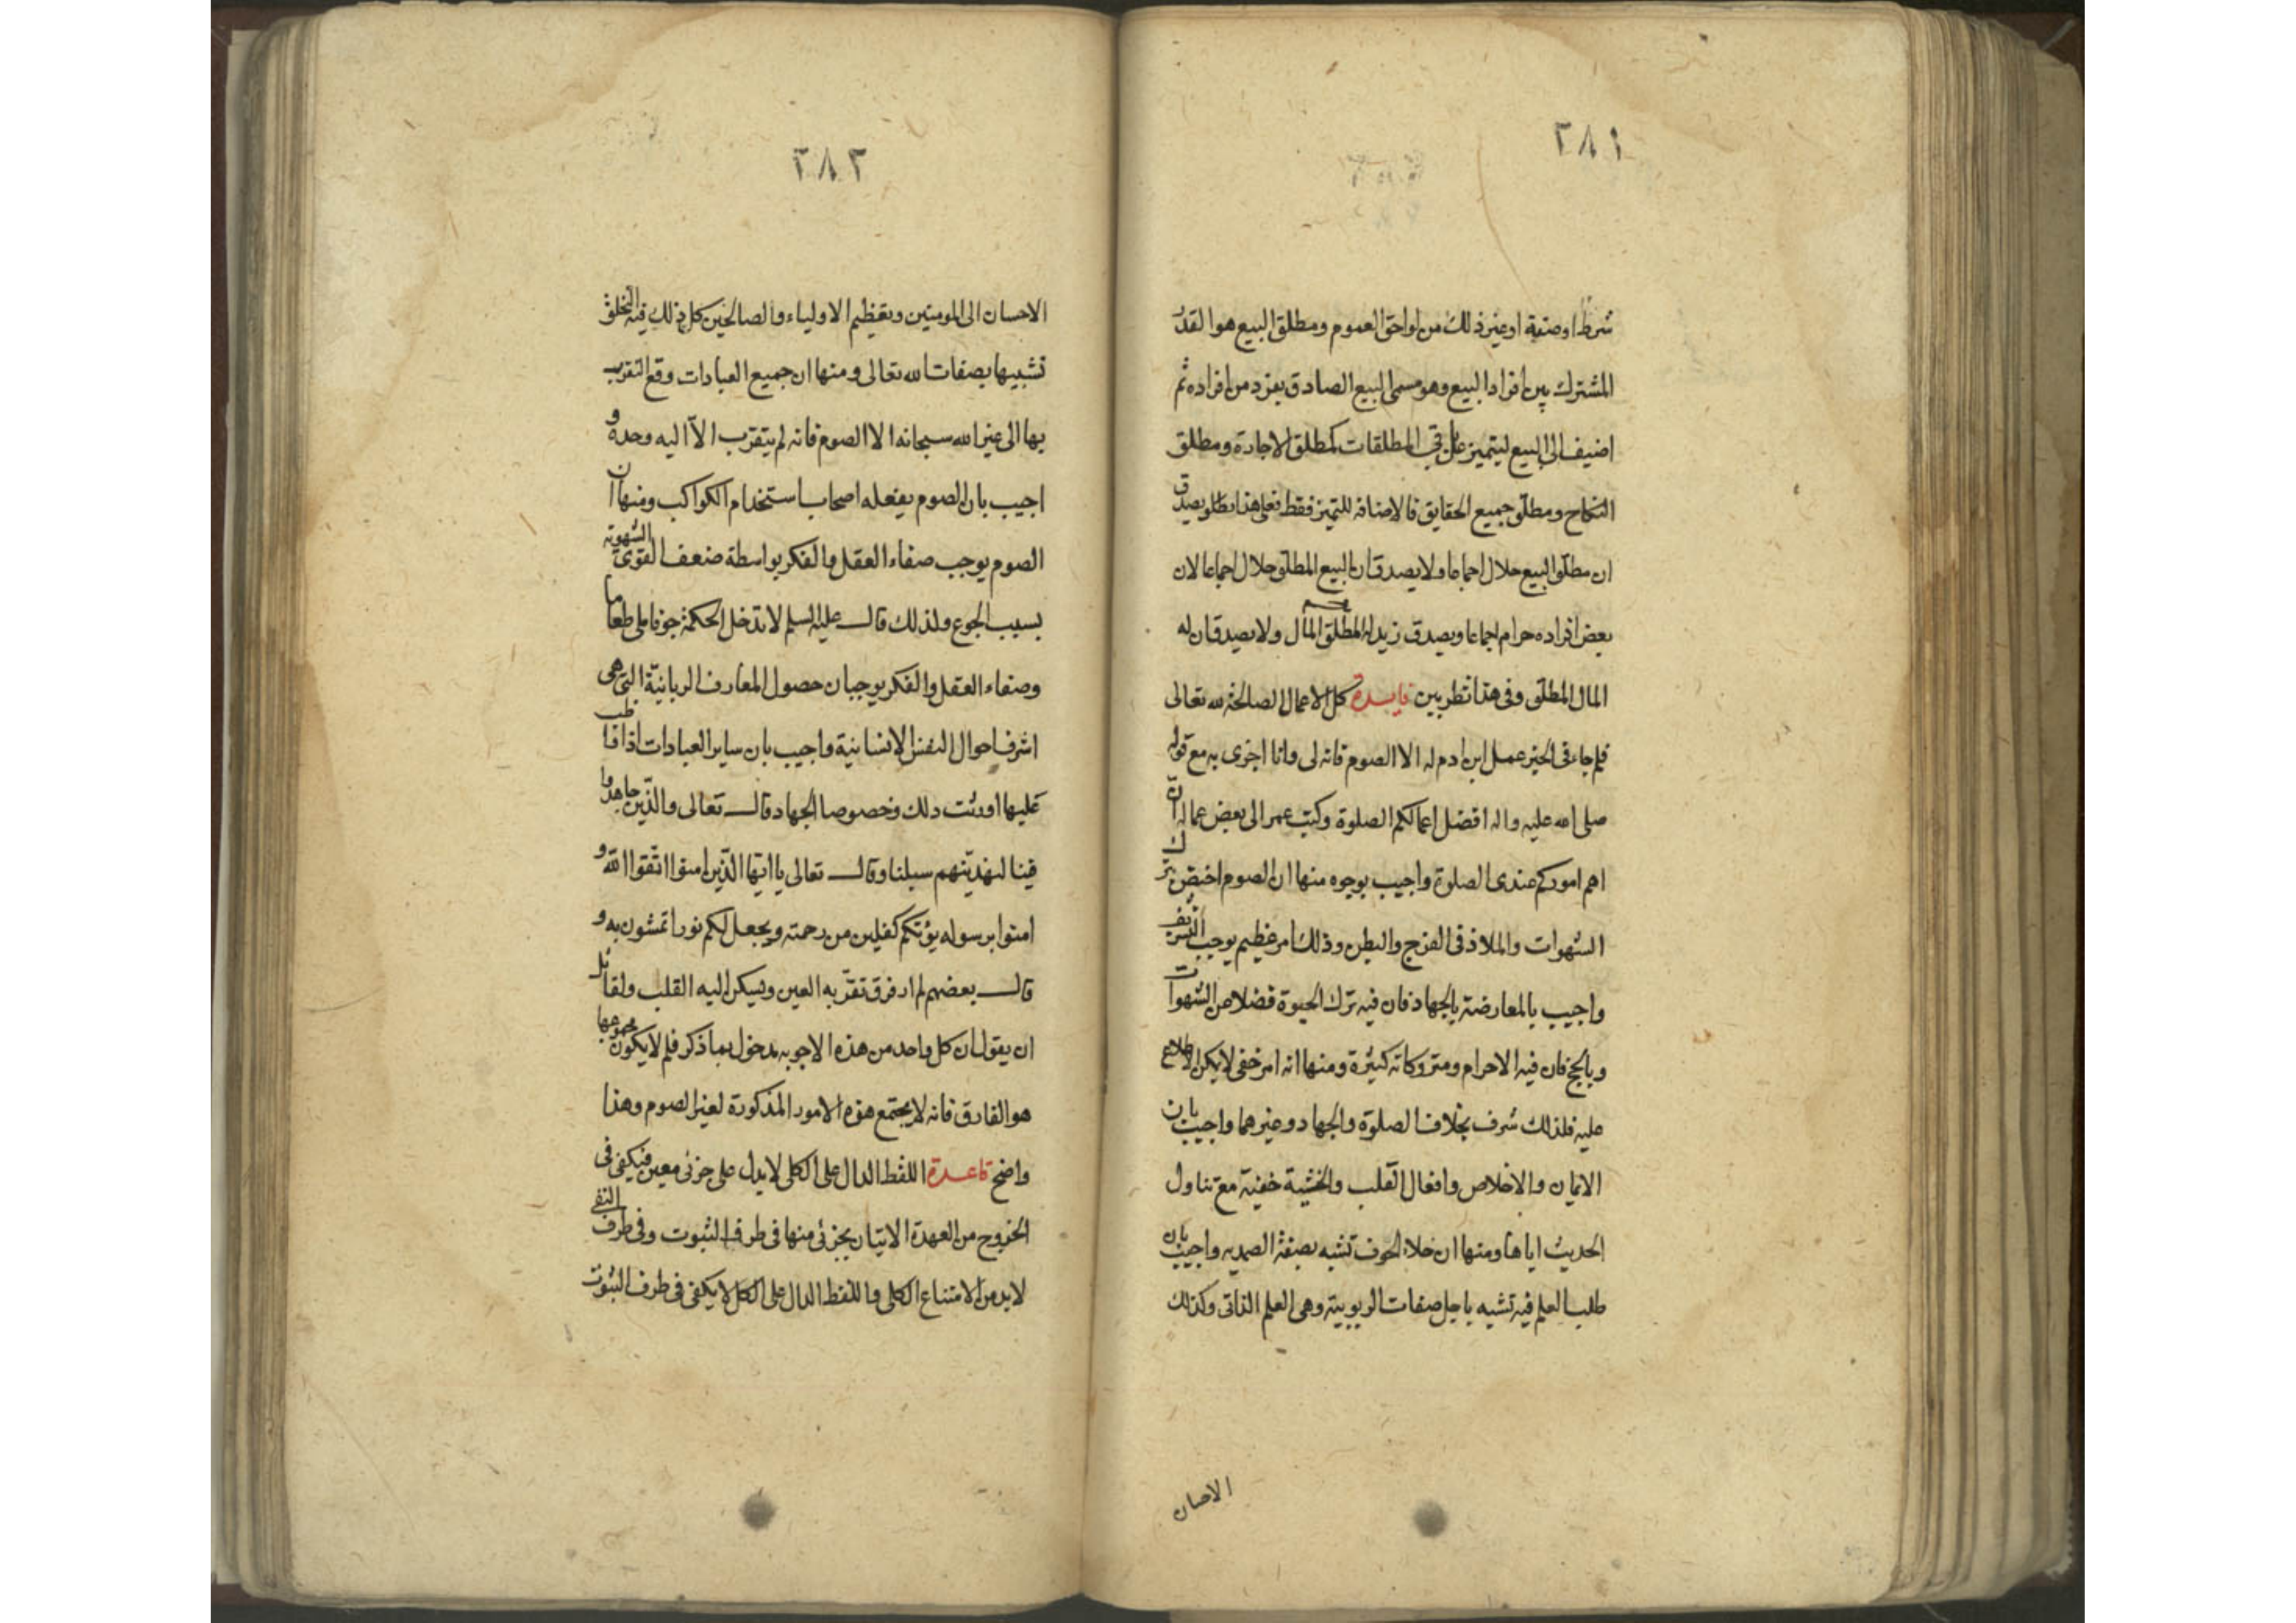 ٢٨١
شرط او صفة او غير ذلك من لواحق العموم ومطلق البيع هو القدر
المشترك بين افراد البيع وهو مسمى البيع الصادق بفرد من افراده ثم
اضيف الى البيع ليتميز عن باقي المطلقات كمطلق الاجارة ومطلق
النكاح ومطلق جميع الحقايق فالاضافة للتميز فقط فعلى هذا يصدق
ان مطلق البيع حلال اجماعا ولا يصدق ان البيع المطلق حلال اجماعا لان
بعض افراده حرام اجماعا ويصدق زيد له مطلق المال ولا يصدق ان له
المال المطلق وفى هذا نظر بين فايدة كل الاعمال الصالحة لله تعالى
فلم جاء فى الخبر عمل ابن ادم له الا الصوم فانه لى وانا اجزى به مع قوله
صلى الله عليه واله افضل اعمالكم الصلوة وكتب عمر الى بعض عماله ان
اهم اموركم عندى الصلوة واجيب بوجوه منها ان الصوم اختص بترك
الشهوات والملاذ فى الفرج والبطن وذلك امر عظيم يوجب التشريف
واجيب بالمعارضة بالجهاد فان فيه ترك الحيوة فضلا عن الشهوات
وبالحج فان فيه الاحرام ومتروكاته كثيرة ومنها انه امر خفى لا يمكن الاطلاع
عليه فلذلك شرف بخلاف الصلوة والجهاد وغيرهما واجيب بان
الايمان والاخلاص وافعال القلب والخشية خفية مع تناول
الحديث اياها ومنها ان خلاء الجوف تشبه بصفة الصمدية واجيب بان
طلب العلم فيه تشبه باجل صفات الربوبية وهى العلم الذاتى وكذلك
الاحسان
٢٨٢
الاحسان الى المومنين وتعظيم الاولياء والصالحين كل ذلك فيه التخلق
تشبيها بصفات الله تعالى ومنها ان جميع العبادات وقع التقرب
بها الى غير الله سبحانه الا الصوم فانه لم يتقرب الا اليه وحده و
اجيب بان الصوم يفعله اصحاب استخدام الكواكب ومنها ان
الصوم يوجب صفاء العقل والفكر بواسطة ضعف القوى الشهوية
بسبب الجوع ولذلك قال عليه السلم لا تدخل الحكمة جوفا ملى طعاما
وصفاء العقل والفكر يوجبان حصول المعارف الربانية التى هى
اشرف احوال النفس الانسانية واجيب بان ساير العبادات اذا واظب
عليها اورثت ذلك وخصوصا الجهاد قال تعالى والذين جاهدوا
فينا لنهدينهم سبلنا وقال تعالى يا ايها الذين امنوا اتقوا الله و
امنوا برسوله يؤتكم كفلين من رحمته ويجعل لكم نورا تمشون به و
قال بعضهم لم ار فرق تقر به العين ويسكن اليه القلب ولقائل
ان يقول ان كل واحد من هذه الاجوبه مدخول بما ذكر فلم لا يكون مجموعها
هو الفارق فانه لا يجتمع هذه الامور المذكورة لغير الصوم وهذا
واضح قاعدة اللفظ الدال على الكلى لا يدل على جزئى معين فيكفى فى
الخروج من العهدة الاتيان بجزئى منها فى طرف الثبوت وفى طرف النفى
لابد من الامتناع الكلى واللفظ الدال على الكل لا يكفى فى طرف الثبوت